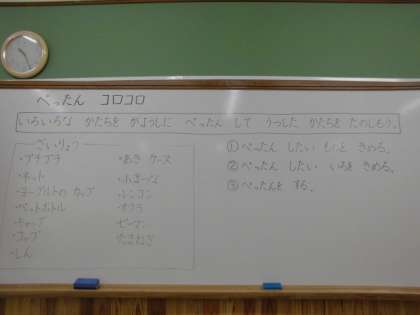 ぺったん コロコロ
いろいろな かたちを がようしに ぺったん して うつした かたちを たのしもう。
ざいりょう
・プチプチ
・ネット
・ヨーグルトの カップ
・ペットボトル
・キャップ
・コップ
・しん
・あき ケース
・れんこん
・オクラ
ピーマン
たまねぎ
①ぺったん したい もの きめる。
②ぺったん したい いろを きめる。
③ぺったんを する。